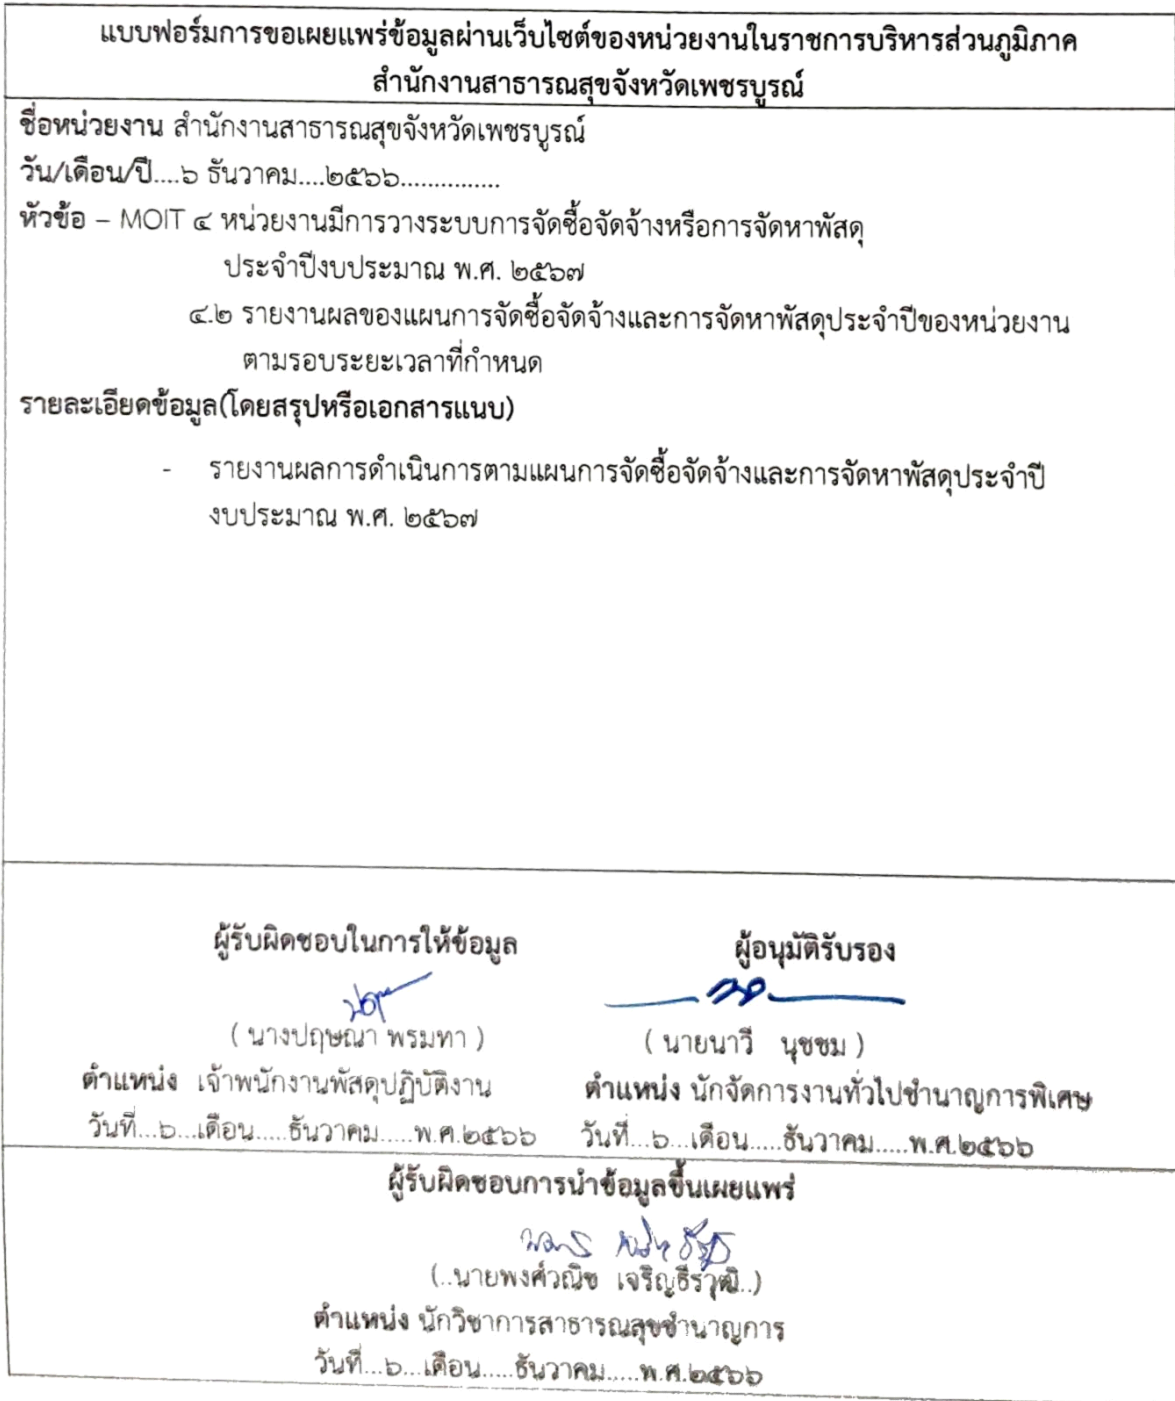 แบบฟอร์มการขอเผยแพร่ข้อมูลผ่านเว็บไซต์ของหน่วยงานในราชการบริหารส่วนภูมิภาค
สำนักงานสาธารณสุขจังหวัดเพชรบูรณ์
ชื่อหน่วยงาน สำนักงานสาธารณสุขจังหวัดเพชรบูรณ์
วัน/เดือน/ปี....๖ ธันวาคม....๒๕๖๖...............
หัวข้อ – MOIT ๔ หน่วยงานมีการวางระบบการจัดซื้อจัดจ้างหรือการจัดหาพัสดุ
ประจำปีงบประมาณ พ.ศ. ๒๕๖๗
๔.๒ รายงานผลของแผนการจัดซื้อจัดจ้างและการจัดหาพัสดุประจำปีของหน่วยงาน
ตามรอบระยะเวลาที่กำหนด
รายละเอียดข้อมูล(โดยสรุปหรือเอกสารแนบ)
- รายงานผลการดำเนินการตามแผนการจัดซื้อจัดจ้างและการจัดหาพัสดุประจำปี
งบประมาณ พ.ศ. ๒๕๖๗
ผู้รับผิดชอบในการให้ข้อมูล ผู้อนุมัติรับรอง
( นางปฤษณา พรมทา ) ( นายนาวี นุชชม )
ตำแหน่ง เจ้าพนักงานพัสดุปฏิบัติงาน ตำแหน่ง นักจัดการงานทั่วไปชำนาญการพิเศษ
วันที่...๖...เดือน.....ธันวาคม.....พ.ศ.๒๕๖๖ วันที่...๖...เดือน.....ธันวาคม.....พ.ศ.๒๕๖๖
ผู้รับผิดชอบการนำข้อมูลขึ้นเผยแพร่
(..นายพงศ์วณิช เจริญธีรวุฒิ..)
ตำแหน่ง นักวิชาการสาธารณสุขชำนาญการ
วันที่...๖...เดือน.....ธันวาคม.....พ.ศ.๒๕๖๖